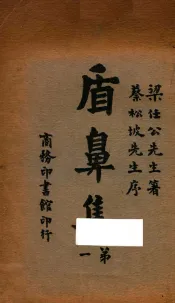 梁任公先生箸
蔡松坡先生序
盾鼻集
第一
商務印書館印行